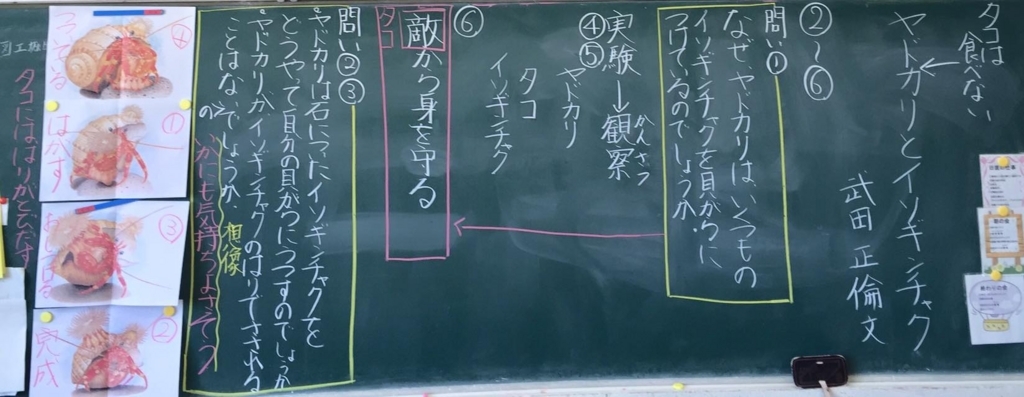 タコは
食べない
ヤドカリとイソギンチャク
武田 正倫 文
②〜⑥
問い①
なぜ、ヤドカリは、いくつもの
イソギンチャクを貝がらに
つけているのでしょうか。
④⑤
実験→観察
かんさつ
ヤドカリ
タコ
イソギンチャク
⑥
敵から身を守る
タコ
問い②③
ヤドカリは石についたイソギンチャクを
どうやって自分の貝がらにうつすのでしょうか
ヤドカリがイソギンチャクのはりでさされる
ことはないのでしょうか。
想像
いかにも気持ちよさそう
④
①
はがす
③
おしつける
②
完成
タコにははりがとびだす